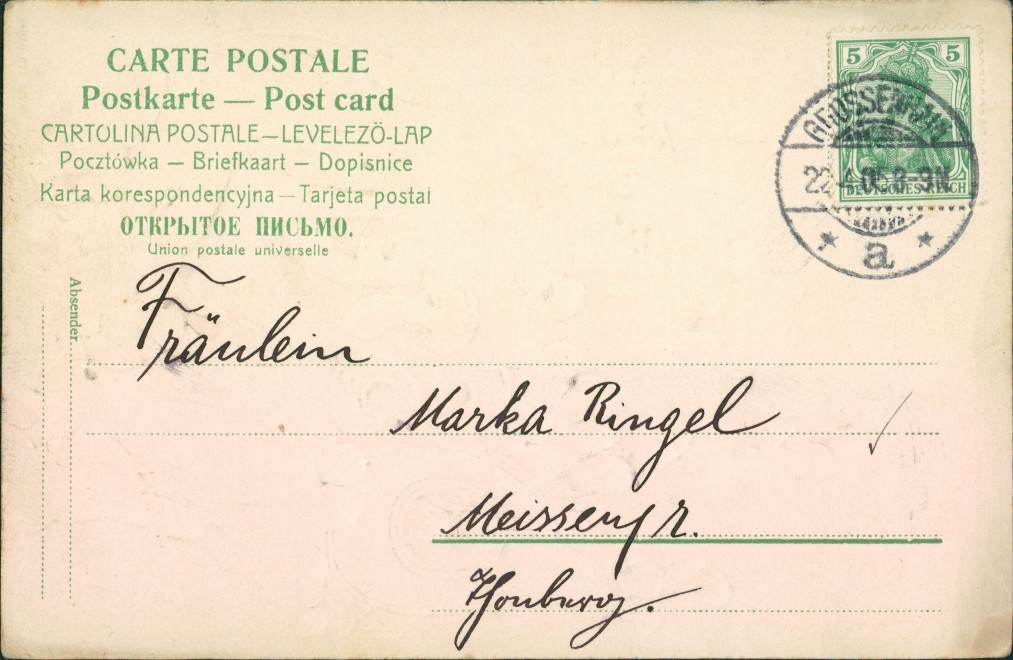 CARTE POSTALE
Postkarte — Post card
CARTOLINA POSTALE — LEVELEZŐ-LAP
Pocztówka — Briefkaart — Dopisnice
Karta korespondencyjna — Tarjeta postal
ОТКРЫТОЕ ПИСЬМО.
Union postale universelle
5 5
DEUTSCHES REICH
GROSSENHAIN
22. 05 8-9N
* a *
Absender.
Fräulein
Marka Ringel
Meissen